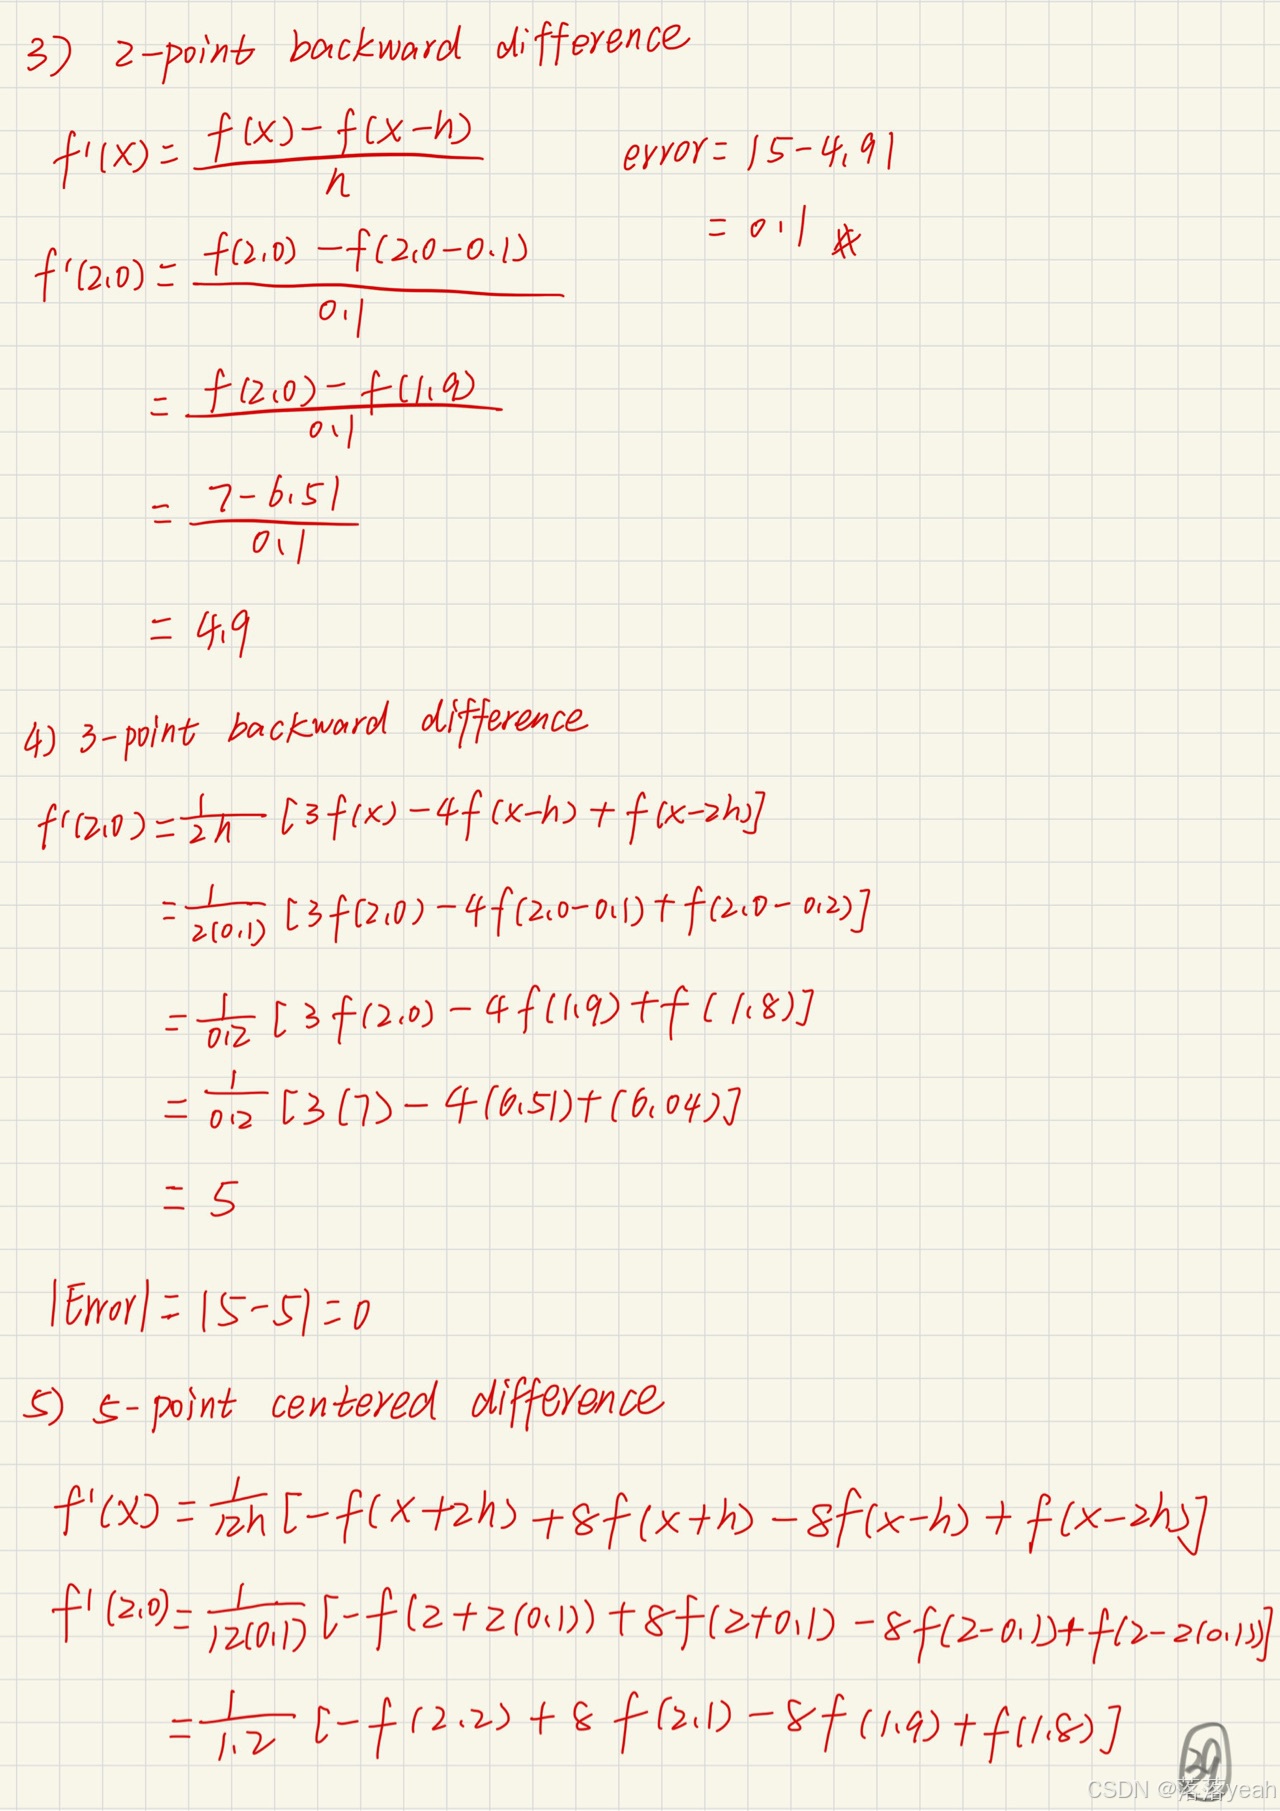 3) 2-point backward difference
f'(x) = \frac{f(x) - f(x-h)}{h}
error = |5-4.9|
= 0.1 *
f'(2.0) = \frac{f(2.0) - f(2.0-0.1)}{0.1}
= \frac{f(2.0) - f(1.9)}{0.1}
= \frac{7-6.51}{0.1}
= 4.9
4) 3-point backward difference
f'(2.0) = \frac{1}{2h} [3f(x) - 4f(x-h) + f(x-2h)]
= \frac{1}{2(0.1)} [3f(2.0) - 4f(2.0-0.1) + f(2.0-0.2)]
= \frac{1}{0.2} [3f(2.0) - 4f(1.9) + f(1.8)]
= \frac{1}{0.2} [3(7) - 4(6.51) + (6.04)]
= 5
|Error| = |5-5| = 0
5) 5-point centered difference
f'(x) = \frac{1}{12h} [-f(x+2h) + 8f(x+h) - 8f(x-h) + f(x-2h)]
f'(2.0) = \frac{1}{12(0.1)} [-f(2+2(0.1)) + 8f(2+0.1) - 8f(2-0.1) + f(2-2(0.1))]
= \frac{1}{1.2} [-f(2.2) + 8f(2.1) - 8f(1.9) + f(1.8)]
CSDN @落落yeah